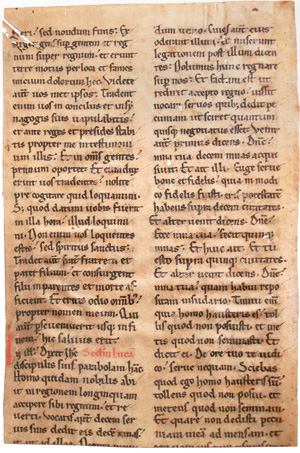 fieri. sed nondum finis. Ex
urget gens sup gentem et reg
num super regnum. et erunt
terre motus per loca et fames
inicium dolorum hec. Videte
aut uos met ipsos. Tradent
enim uos in conciliis et in syn
nagogis suis uapulabitis
et ante reges et presides stabi
tis propter me in testimoni
um illis. Et in omes gentes
primum oportet
erint uos tradentes. nolite
pre cogitare quid loquamini
S; quod datum uobis fuerit
in illa hora. illud loquimi
ni. Non enim uos loquentes
estis. sed spiritus sanctus.
Tradet aut frater fratrem et
pater filium. et consurgent
filii in parentes et morte af
ficient. Et eritis odio omib;
propter nomen meum. Qui
aut pseuerauerit usq in fi
nem. hic saluus erit.
In ill. Dixit ihc Sectm lucā
discipulis suis parabolam hāc
Homo quidam nobilis abi
it in regionem longinquam
accipere sibi regnum. et re
uerti. Vocatis aut decem ser
uis suis dedit eis dece mnas
et ait ad illos.
dum uenio. Ciues aut eius
oderant illum. et miserunt
legationem post illum dicen
tes. Nolumus hunc regnare
sup nos. Et factum est ut
rediret accepto regno. iussit
uocari seruos quib; dedit pe
cuniam ut sciret quantum
quisq negotiatus esset. Venit
aut primus dicens. Dne
mna tua decem mnas acqui
siuit. Et ait illi. Euge serue
bone et fidelis. quia in modi
co fidelis fuisti. eris potestate
habens supra decem ciuitates.
Et alter uenit dicens. Dne
mna tua fecit quinq
mnas. Et huic ait. Et tu
esto supra quinq ciuitates.
Et alter uenit dicens. Dne
ecce mna tua quam habui repo
sitam in sudario. Timui eni
quia homo austeris es. tol
lis quod non posuisti. et me
tis quod non seminasti. Et
dicit ei. De ore tuo te iudi
co. serue nequam. Sciebas
quod ego homo austeris sum
tollens quod non posui. et
metens quod non seminaui.
Et quare non dedisti pecu
niam meam ad mensam. et